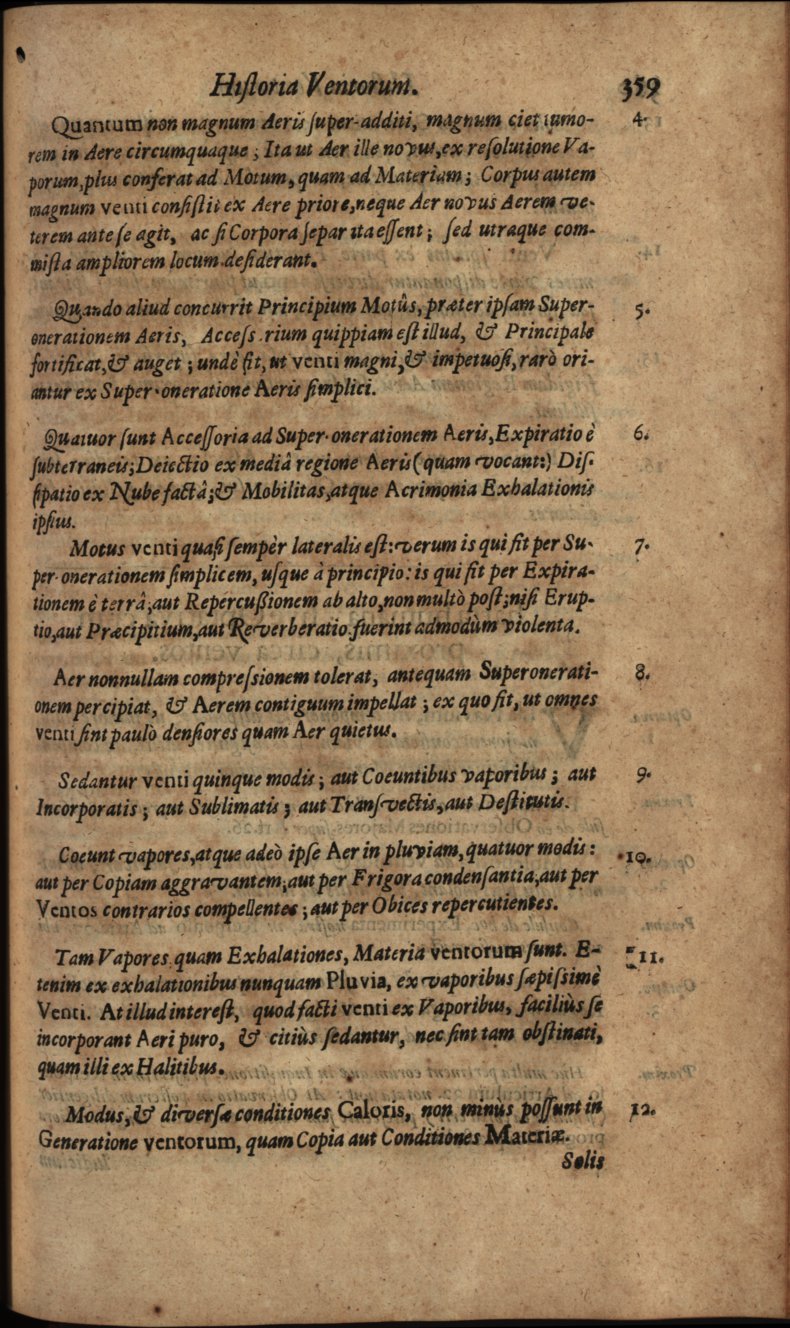 Hiſtoria Ventorum. 359
Quantum non magnum Aeris ſuper-additi, magnum ciet tumo- 4.
rem in Aere circumquaque; Ita ut Aer ille novus, ex reſolutione Va-
porum, plus conferat ad Motum, quam ad Materiam; Corpus autem
magnum venti conſiſtit ex Aere priore, neque Aer novus Aerem ve-
terem ante ſe agit, ac ſi Corpora ſeparata eſſent; ſed utraque com-
miſta ampliorem locum deſiderant.
Quando aliud concurrit Principium Motûs, præter ipſam Super- 5.
onerationem Aeris, Acceſſorium quippiam eſt illud, & Principale
fortificat, & auget; undè fit, ut venti magni, & impetuoſi, rarò ori-
antur ex Super-oneratione Aeris ſimplici.
Quatuor ſunt Acceſſoria ad Super-onerationem Aeris, Expiratio è 6.
ſubterraneis; Deiectio ex mediâ regione Aeris (quam vocant:) Diſ-
ſipatio ex Nube factâ; & Mobilitas, atque Acrimonia Exhalationis
ipſius.
Motus venti quaſi ſempèr lateralis eſt: verum is qui fit per Su- 7.
per-onerationem ſimplicem, uſque à principio: is qui fit per Expira-
tionem è terrâ, aut Repercuſſionem ab alto, non multò poſt; niſi Erup-
tio, aut Præcipitium, aut Reverberatio fuerint admodùm violenta.
Aer nonnullam compreſsionem tolerat, antequam Superonerati- 8.
onem percipiat, & Aerem contiguum impellat; ex quo fit, ut omnes
venti ſint paulò denſiores quam Aer quietus.
Sedantur venti quinque modis; aut Coeuntibus vaporibus; aut 9.
Incorporatis; aut Sublimatis; aut Tranſvectis, aut Deſtitutis.
Coeunt vapores, atque adeò ipſe Aer in pluviam, quatuor modis: 10.
aut per Copiam aggravantem; aut per Frigora condenſantia, aut per
Ventos contrarios compellentes; aut per Obices repercutientes.
Tam Vapores quam Exhalationes, Materia ventorum ſunt. E- 11.
tenim ex exhalationibus nunquam Pluvia, ex vaporibus ſæpiſsimè
Venti. At illud intereſt, quod facti venti ex Vaporibus, faciliùs ſe
incorporant Aeri puro, & citiùs ſedantur, nec ſint tam obſtinati,
quam illi ex Halitibus.
Modus, & diverſæ conditiones Caloris, non minùs poſſunt in 12.
Generatione ventorum, quam Copia aut Conditiones Materiæ.
Solis